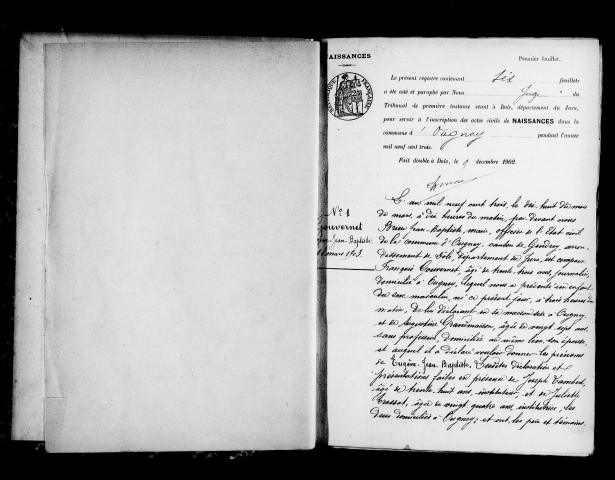 NAISSANCES
Premier feuillet.
Le présent registre contenant six feuillets
a été coté et paraphé par Nous Juge du
Tribunal de première instance séant à Dole, département du Jura,
pour servir à l'inscription des actes civils de NAISSANCES dans la
commune d'Ougney pendant l'année
mil neuf cent trois.
Fait double à Dole, le 9 décembre 1902.
RÉPUBLIQUE FRANÇAISE
N° 1
Gouvernet
Jean-Baptiste
mars 1903.
L'an mil neuf cent trois, le dix-huit du mois
de mars, à dix heures du matin, par devant nous
Jean-Baptiste, maire, officier de l'Etat civil
de la commune d'Ougney, canton de Gendrey, arron-
dissement de Dôle, département du Jura, est comparu
François Gouvernet, âgé de trente-trois ans, journalier,
domicilié à Ougney, lequel nous a présenté un enfant
du sexe masculin, né ce présent jour, à trois heures du
matin, de lui déclarant en sa maison sise à Ougney
et de Augustine Grandmaison, âgée de vingt sept ans,
sans profession, domiciliée au même lieu, son épouse,
et auquel il a déclaré vouloir donner les prénoms
de Eugène-Jean-Baptiste. Lesdites déclaration et
présentations faites en présence de Joseph
âgé de trente huit ans, instituteur, et de Juliette
âgée de vingt quatre ans, institutrice, les
deux domiciliés à Ougney; et ont, les père et témoins,